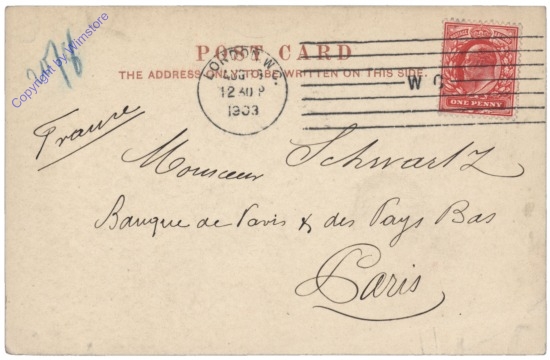 POST CARD
THE ADDRESS ONLY TO BE WRITTEN ON THIS SIDE.
LONDON. W.C.
12 30 P
1903
W C
ONE PENNY
France
Monsieur Schwartz
Banque de Paris & des Pays Bas
Paris
Copyright by Wimstore